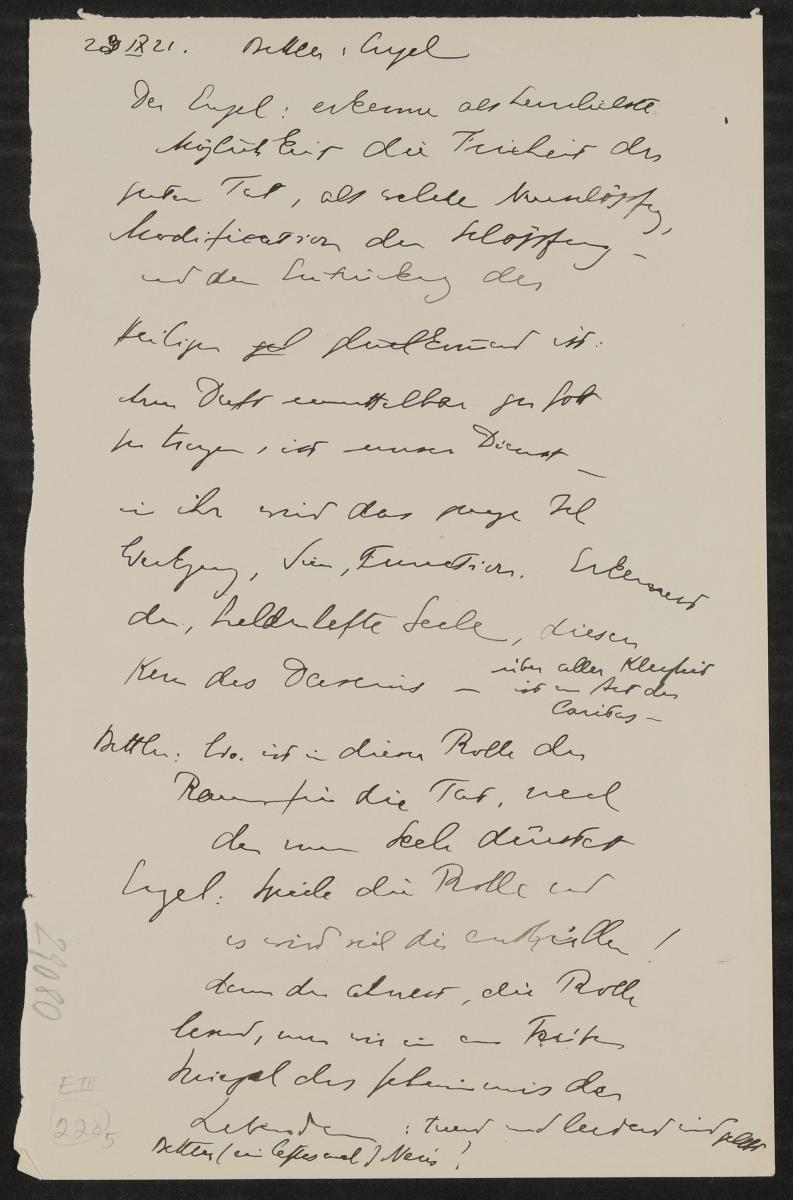 23 IX 21. Bettler : Engel
Der Engel : erkenne als
Möglichkeit die Freiheit der
guten Tat, als welche Neuschöpfg,
Modification der Schöpfung –
und der Entrückung des
Heiligen ist :
Duft unmittelbar zu Gott
zu tragen, ist unser Dienst –
in ihr wird das ganze
Werkzeug, Sinn, Function. Erkennest
du, heldenhafte Seele, diesen
Kern des Daseins –
über aller Klugheit
ist ein Act der
Caritas –
Bettler : Wo ist in dieser Rolle der
Raum für die Tat, nach
der meine Seele dürstet
Engel : Spiele die Rolle und
es wird sich dir enthüllen !
denn du ahnest, die Rolle
lesend, wie in einem
Spiegel das Geheimnis des
: und leidend und
Bettler (ein letztes mal) Nein !
29080
E III
220 5